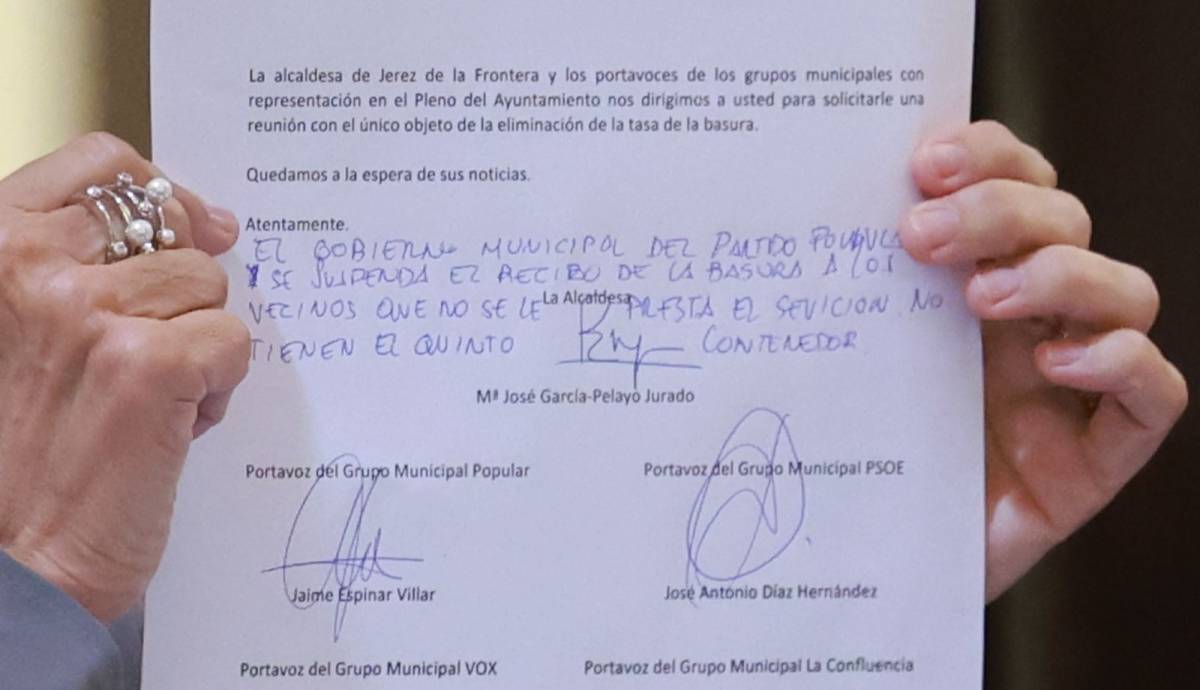 La alcaldesa de Jerez de la Frontera y los portavoces de los grupos municipales con
representación en el Pleno del Ayuntamiento nos dirigimos a usted para solicitarle una
reunión con el único objeto de la eliminación de la tasa de la basura.
Quedamos a la espera de sus noticias.
Atentamente.
EL GOBIERNO MUNICIPAL DEL PARTIDO
SE SUSPENDA EL RECIBO DE LA BASURA A LOS
VECINOS QUE NO SE LE PRESTA EL SEVICION NO
La Alcaldesa
TIENEN EL QUINTO CONTENEDOR
Mª José García-Pelayo Jurado
Portavoz del Grupo Municipal Popular Portavoz del Grupo Municipal PSOE
Jaime Espinar Villar José Antonio Díaz Hernández
Portavoz del Grupo Municipal VOX Portavoz del Grupo Municipal La Confluencia